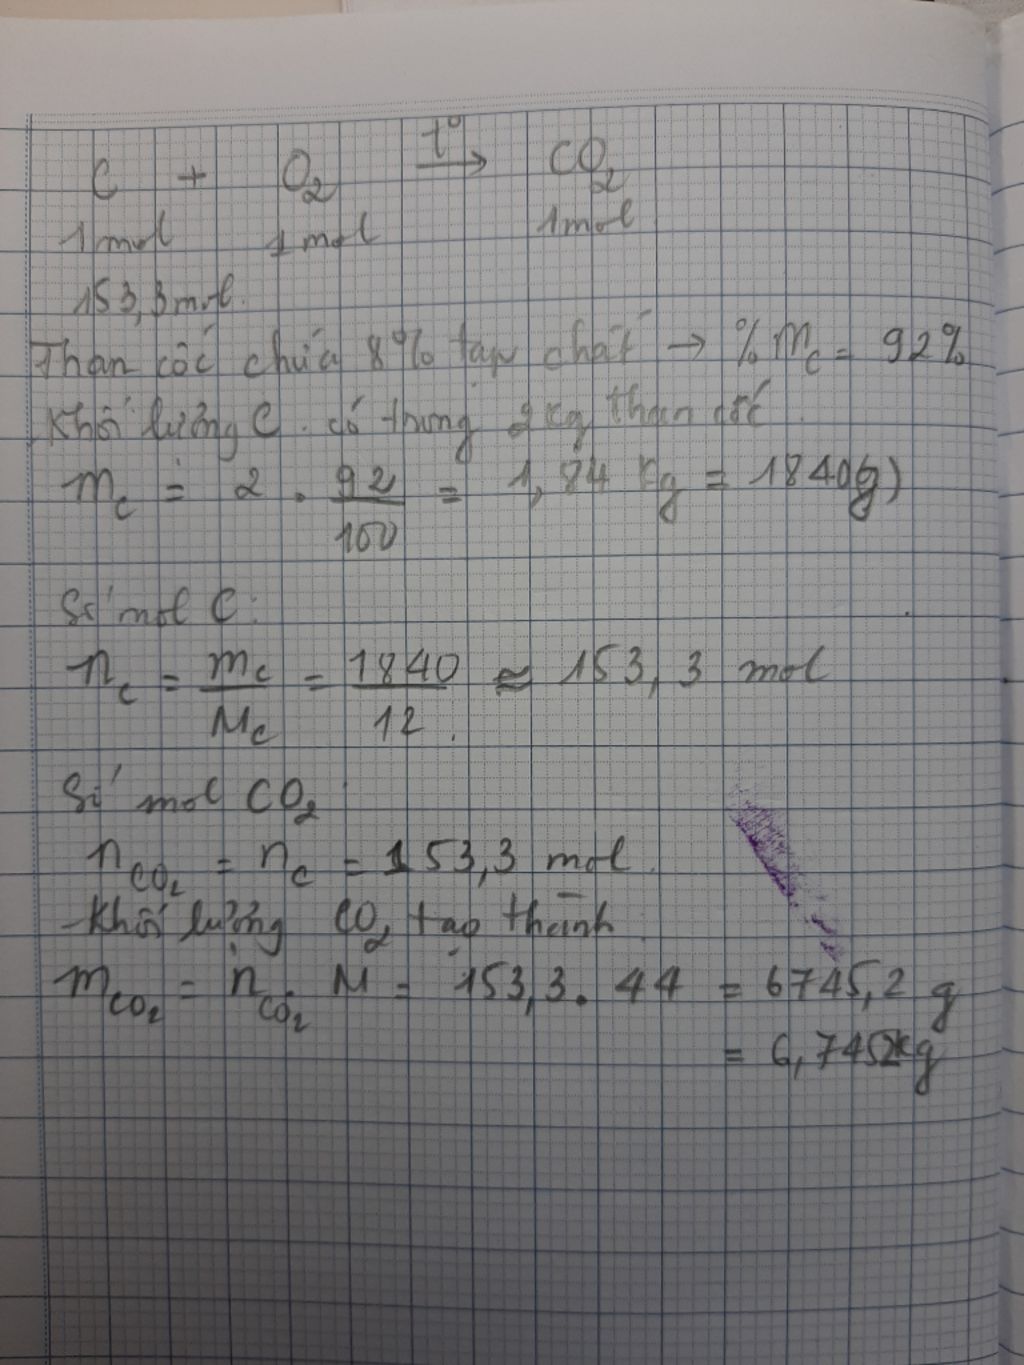 C + O₂ →(t°) CO₂
1mol 1mol 1mol
153,3mol.
Than cốc chứa 8% tạp chất → %m_C = 92%
Khối lượng C có trong 2kg than cốc.
m_C = 2 . 92/100 = 1,84 Kg = 1840(g)
Số mol C:
n_C = m_C/M_C = 1840/12 ≈ 153,3 mol
Số mol CO₂
n_CO₂ = n_C = 153,3 mol.
-Khối lượng CO₂ tạo thành
m_CO₂ = n_CO₂ . M = 153,3. 44 = 6745,2 g
= 6,7452kg